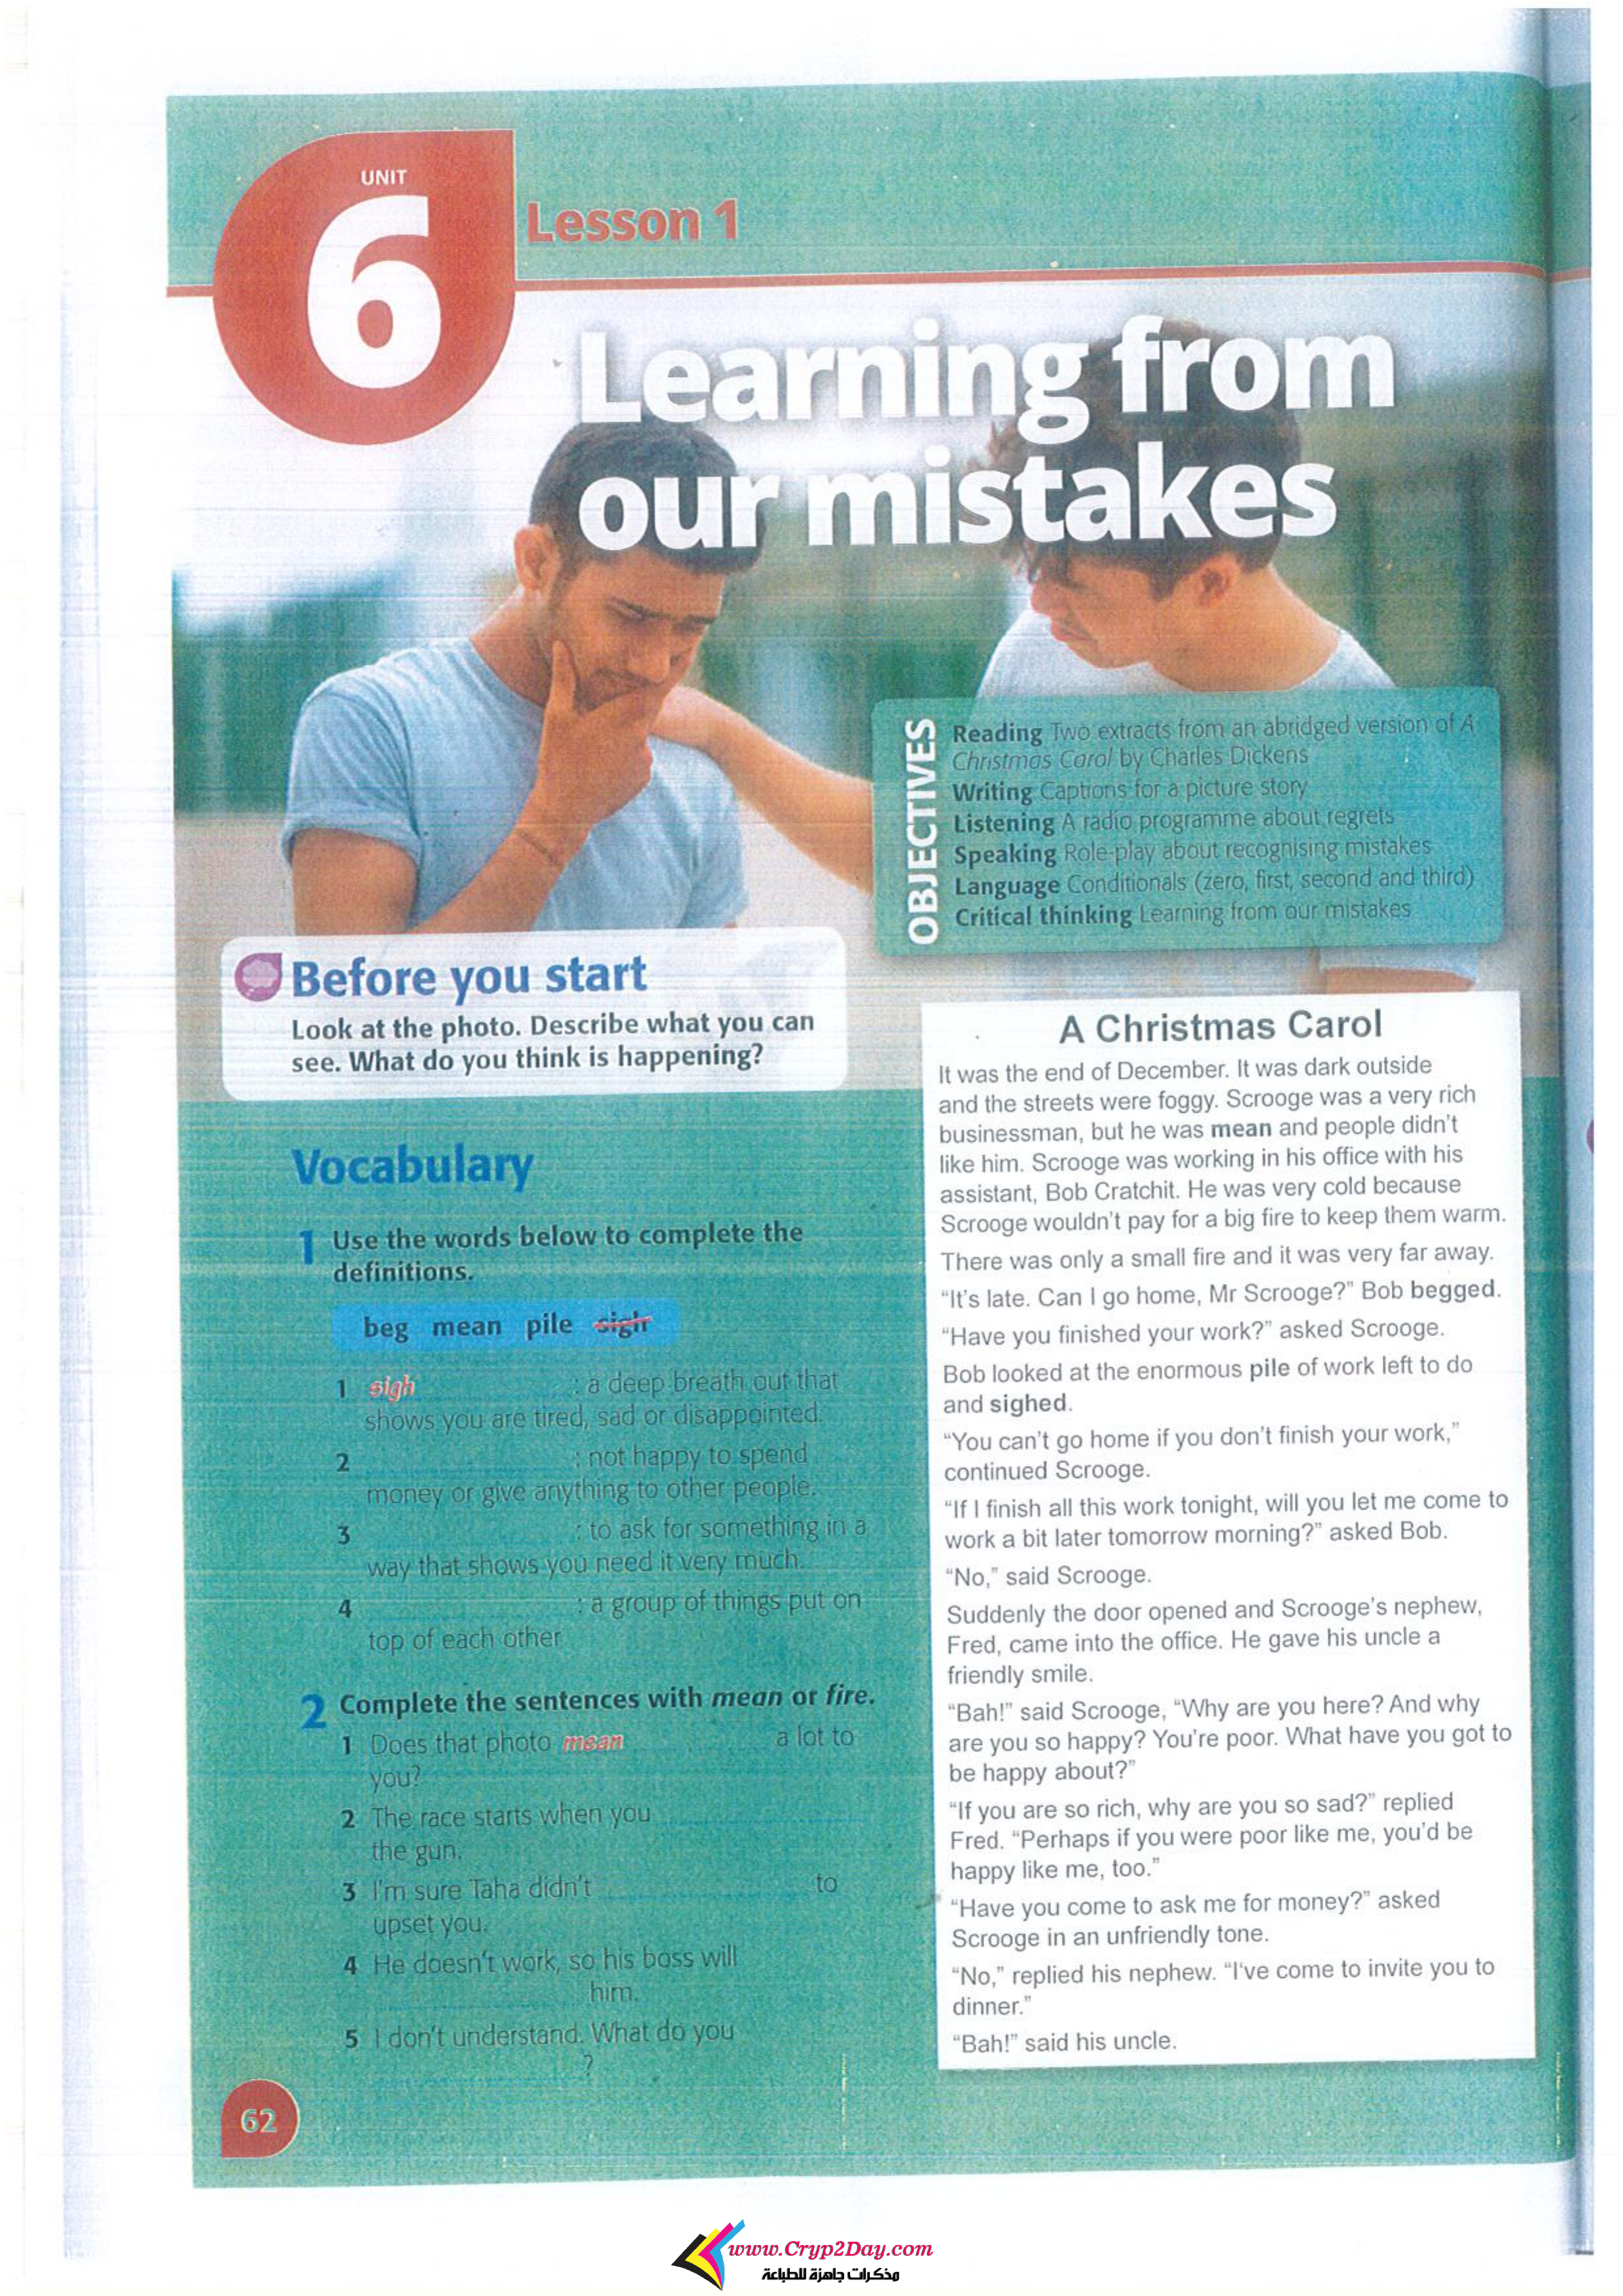 UNIT
6
Lesson 1
Learning from
our mistakes
OBJECTIVES
Reading Two extracts from an abridged version of A
Christmas Carol by Charles Dickens
Writing Captions for a picture story
Listening A radio programme about regrets
Speaking Role-play about recognising mistakes
Language Conditionals (zero, first, second and third)
Critical thinking Learning from our mistakes
Before you start
Look at the photo. Describe what you can
see. What do you think is happening?
Vocabulary
1 Use the words below to complete the
definitions.
beg mean pile sigh
1 sigh : a deep breath out that
shows you are tired, sad or disappointed.
2 : not happy to spend
money or give anything to other people.
3 : to ask for something in a
way that shows you need it very much.
4 : a group of things put on
top of each other
2 Complete the sentences with mean or fire.
1 Does that photo mean a lot to
you?
2 The race starts when you
the gun.
3 I'm sure Taha didn't to
upset you.
4 He doesn't work, so his boss will
him.
5 I don't understand. What do you
?
A Christmas Carol
It was the end of December. It was dark outside
and the streets were foggy. Scrooge was a very rich
businessman, but he was mean and people didn't
like him. Scrooge was working in his office with his
assistant, Bob Cratchit. He was very cold because
Scrooge wouldn't pay for a big fire to keep them warm.
There was only a small fire and it was very far away.
"It's late. Can I go home, Mr Scrooge?" Bob begged.
"Have you finished your work?" asked Scrooge.
Bob looked at the enormous pile of work left to do
and sighed.
"You can't go home if you don't finish your work,"
continued Scrooge.
"If I finish all this work tonight, will you let me come to
work a bit later tomorrow morning?" asked Bob.
"No," said Scrooge.
Suddenly the door opened and Scrooge's nephew,
Fred, came into the office. He gave his uncle a
friendly smile.
"Bah!" said Scrooge, "Why are you here? And why
are you so happy? You're poor. What have you got to
be happy about?"
"If you are so rich, why are you so sad?" replied
Fred. "Perhaps if you were poor like me, you'd be
happy like me, too."
"Have you come to ask me for money?" asked
Scrooge in an unfriendly tone.
"No," replied his nephew. "I've come to invite you to
dinner."
"Bah!" said his uncle.
62
www.Cryp2Day.com
مذكرات جاهزة للطباعة